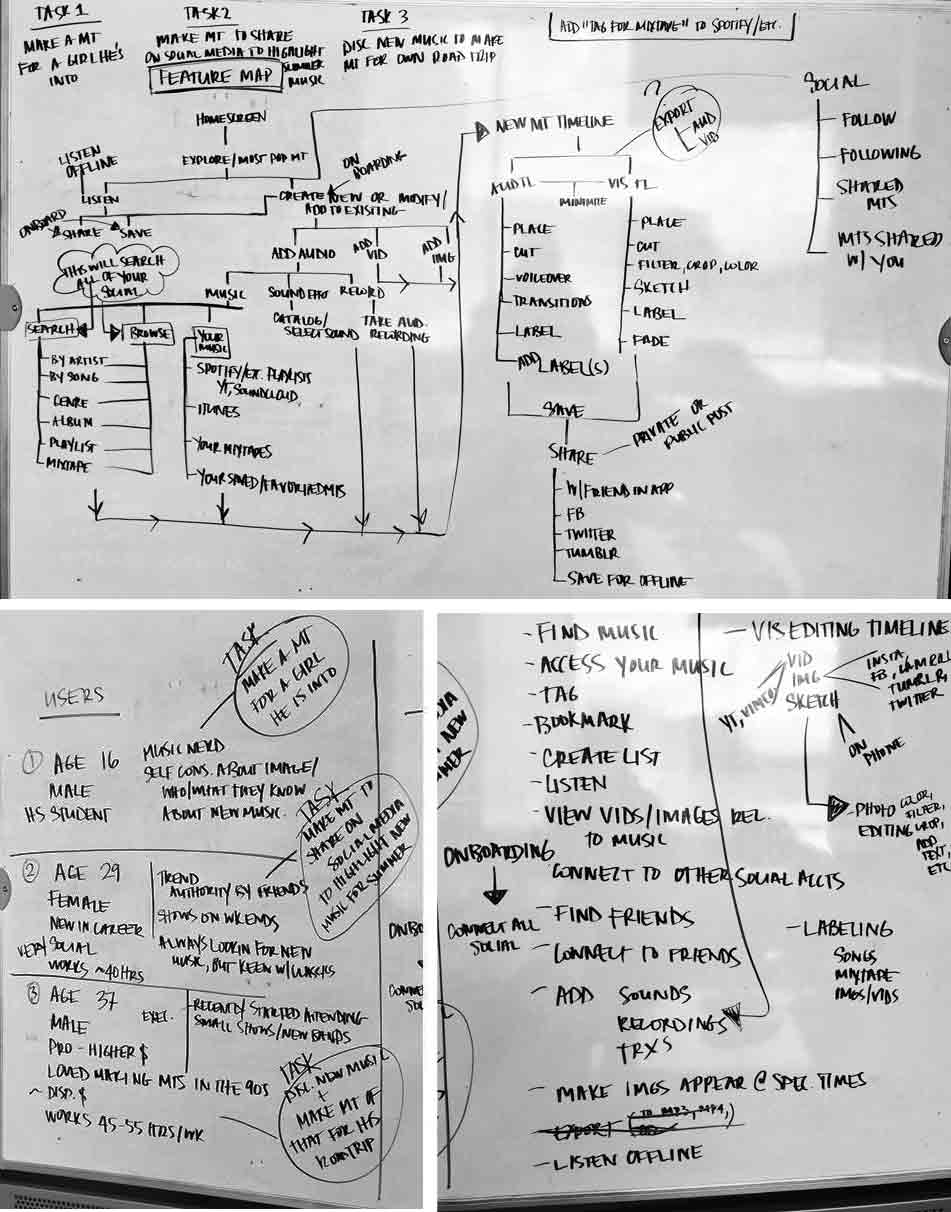 TASK 1
MAKE A MT
FOR A GIRL HE'S
INTO
TASK 2
MAKE MT TO SHARE
ON SOCIAL MEDIA TO HIGHLIGHT
SUMMER
MUSIC
FEATURE MAP
TASK 3
DISC NEW MUSIC TO MAKE
MT FOR OWN ROAD TRIP
ADD "TAG FOR MIXTAPE" TO SPOTIFY/ETC.
HOMESCREEN
EXPLORE/MOST POP MT
LISTEN
OFFLINE
LISTEN
ONBOARD
SHARE
SAVE
ON
BOARDING
CREATE NEW OR MODIFY/
ADD TO EXISTING
ADD AUDIO
ADD
VID
ADD
IMG
THIS WILL SEARCH
ALL OF YOUR
SOCIAL
MUSIC
SOUND EFFX
RECORD
CATALOG/
SELECT SOUND
TAKE AUD.
RECORDING
SEARCH
BROWSE
YOUR
MUSIC
BY ARTIST
BY SONG
GENRE
ALBUM
PLAYLIST
MIXTAPE
SPOTIFY/ETC. PLAYLISTS
YT, SOUNDCLOUD
ITUNES
YOUR MIXTAPES
YOUR SAVED/FAVORITED MTS
NEW MT TIMELINE
?
EXPORT
AUD
VID
AUD TL
VIS TL
MINIMIZE
PLACE
CUT
VOICEOVER
TRANSITIONS
LABEL
ADD LABEL(S)
PLACE
CUT
FILTER, CROP, COLOR
SKETCH
LABEL
FADE
SAVE
SHARE
PRIVATE OR
PUBLIC POST
W/FRIEND IN APP
FB
TWITTER
TUMBLR
SAVE FOR OFFLINE
SOCIAL
FOLLOW
FOLLOWING
SHARED
MTS
MTS SHARED
W/ YOU
USERS
TASK
MAKE A MT
FOR A GIRL
HE IS INTO
1 AGE 16
MALE
HS STUDENT
MUSIC NERD
SELF CONS. ABOUT IMAGE/
WHO/WHAT THEY KNOW
ABOUT NEW MUSIC.
TASK
MAKE MT TO
SHARE ON
SOCIAL MEDIA
TO HIGHLIGHT NEW
MUSIC FOR SUMMER
2 AGE 29
FEMALE
NEW IN CAREER
VERY SOCIAL
WORKS ~40HRS
TREND
AUTHORITY BY FRIENDS
SHOWS ON WKENDS
ALWAYS LOOKIN FOR NEW
MUSIC, BUT KEEN W/CLASSICS
3 AGE 37
EXEC.
MALE
PRO - HIGHER $
LOVED MAKING MTS IN THE 90S
~ DISP. $
WORKS 45-55 HRS/WK
RECENTLY STARTED ATTENDING
SMALL SHOWS/NEW BANDS
TASK
DISC. NEW MUSIC
+
MAKE MT OF
THAT FOR HIS
ROADTRIP
ONBO
CONNE
SOC
- FIND MUSIC
- ACCESS YOUR MUSIC
- TAG
- BOOKMARK
- CREATE LIST
- LISTEN
- VIEW VIDS/IMAGES REL.
TO MUSIC
ONBOARDING
CONNECT ALL
SOCIAL
CONNECT TO OTHER SOCIAL ACCTS
- FIND FRIENDS
- CONNECT TO FRIENDS
- ADD SOUNDS
RECORDINGS
TRXS
- MAKE IMGS APPEAR @ SPEC. TIMES
- EXPORT (TO MP3, MP4,)
- LISTEN OFFLINE
- VIS EDITING TIMELINE
VID
IMG
SKETCH
YT, VIMEO
INSTA,
FB, CAM ROLL
TUMBLR,
TWITTER
ON
PHONE
- PHOTO
EDITING
COLOR,
FILTER,
CROP,
ADD
TEXT,
ETC
- LABELING
SONGS
MIXTAPE
IMGS/VIDS